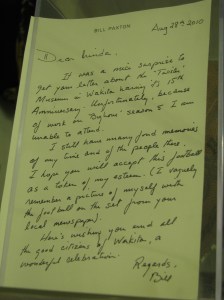 BILL PAXTON
Aug 28th 2010
Dear Linda,
It was a nice surprise to
get your letter about the "Twister"
Museum in Wakita having its 15th
Anniversary. Unfortunately, because
of work on "Big Love" season 5 I am
unable to attend.
I still have many fond memories
of my time and of the people there.
I hope you will accept this football
as a token of my esteem. (I vaguely
remember a picture of myself with
the football on the set from your
local newspaper).
Here's wishing you and all
the good citizens of Wakita, a
wonderful celebration.
Regards,
Bill